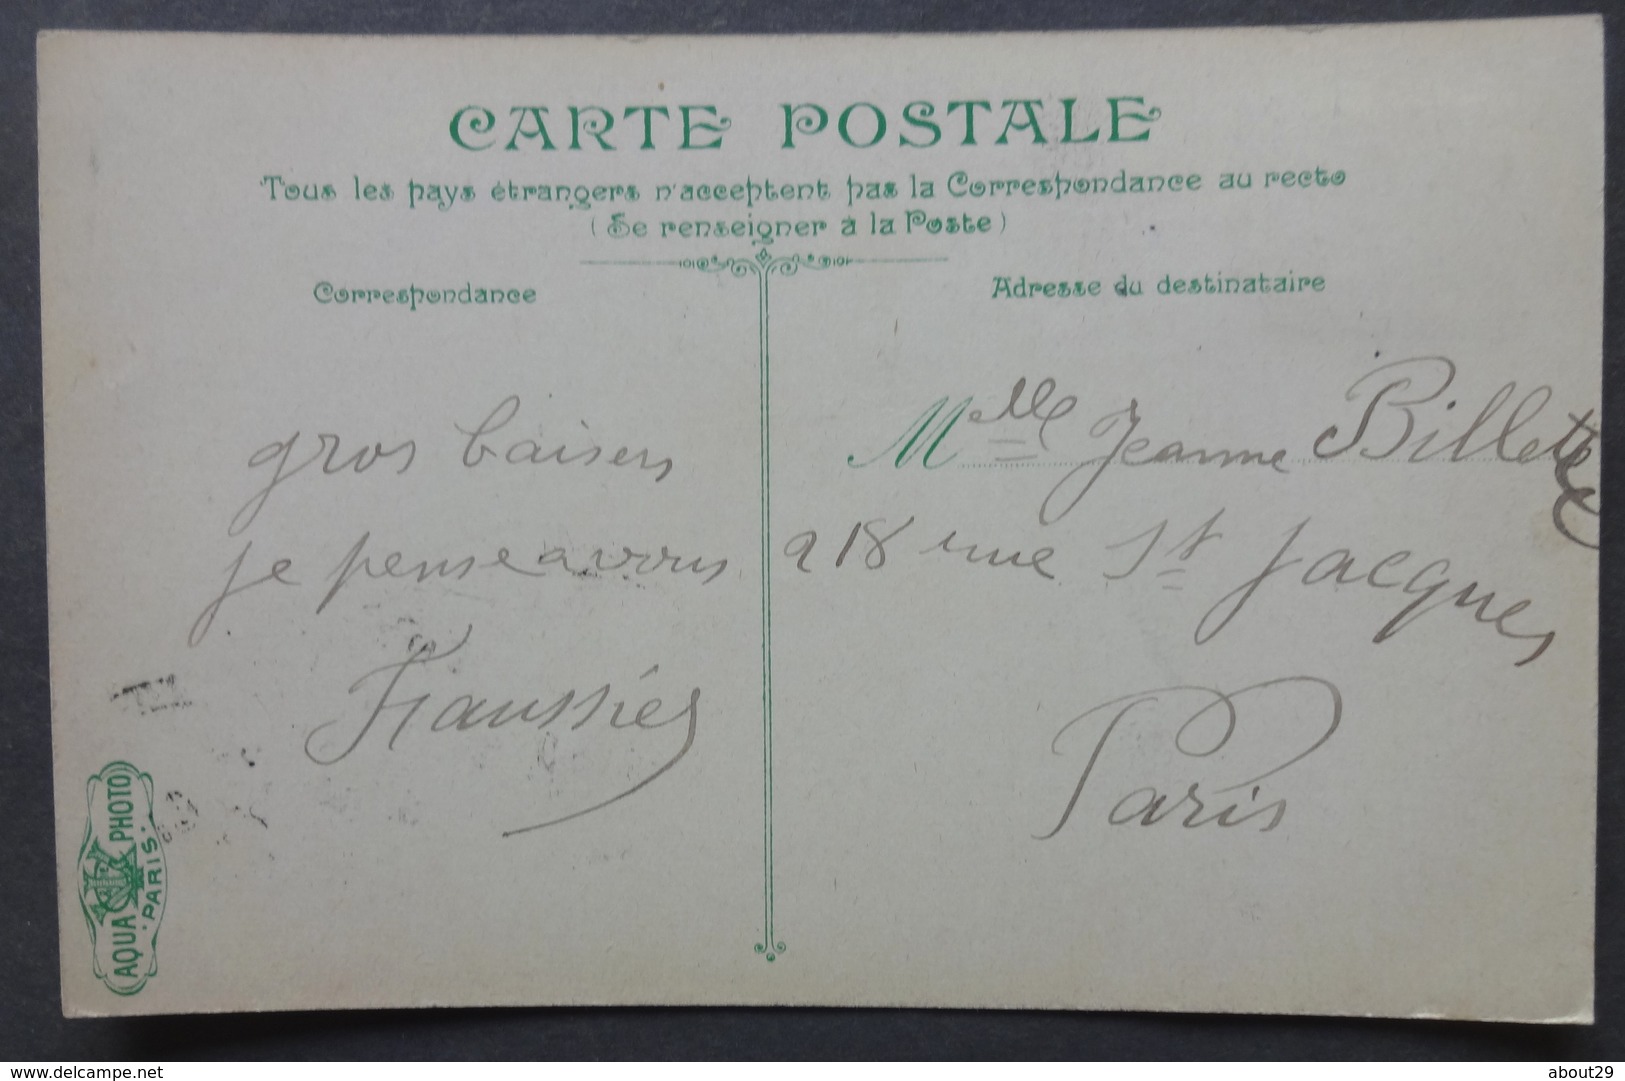 CARTE POSTALE
Tous les pays étrangers n'acceptent pas la Correspondance au recto
(Se renseigner à la Poste)
Correspondance
Adresse du destinataire
gros baisers
je pense a vous
Melle Jeanne Billette
218 rue St Jacques
Paris
AQUA PHOTO
PARIS
www.delcampe.net
about29